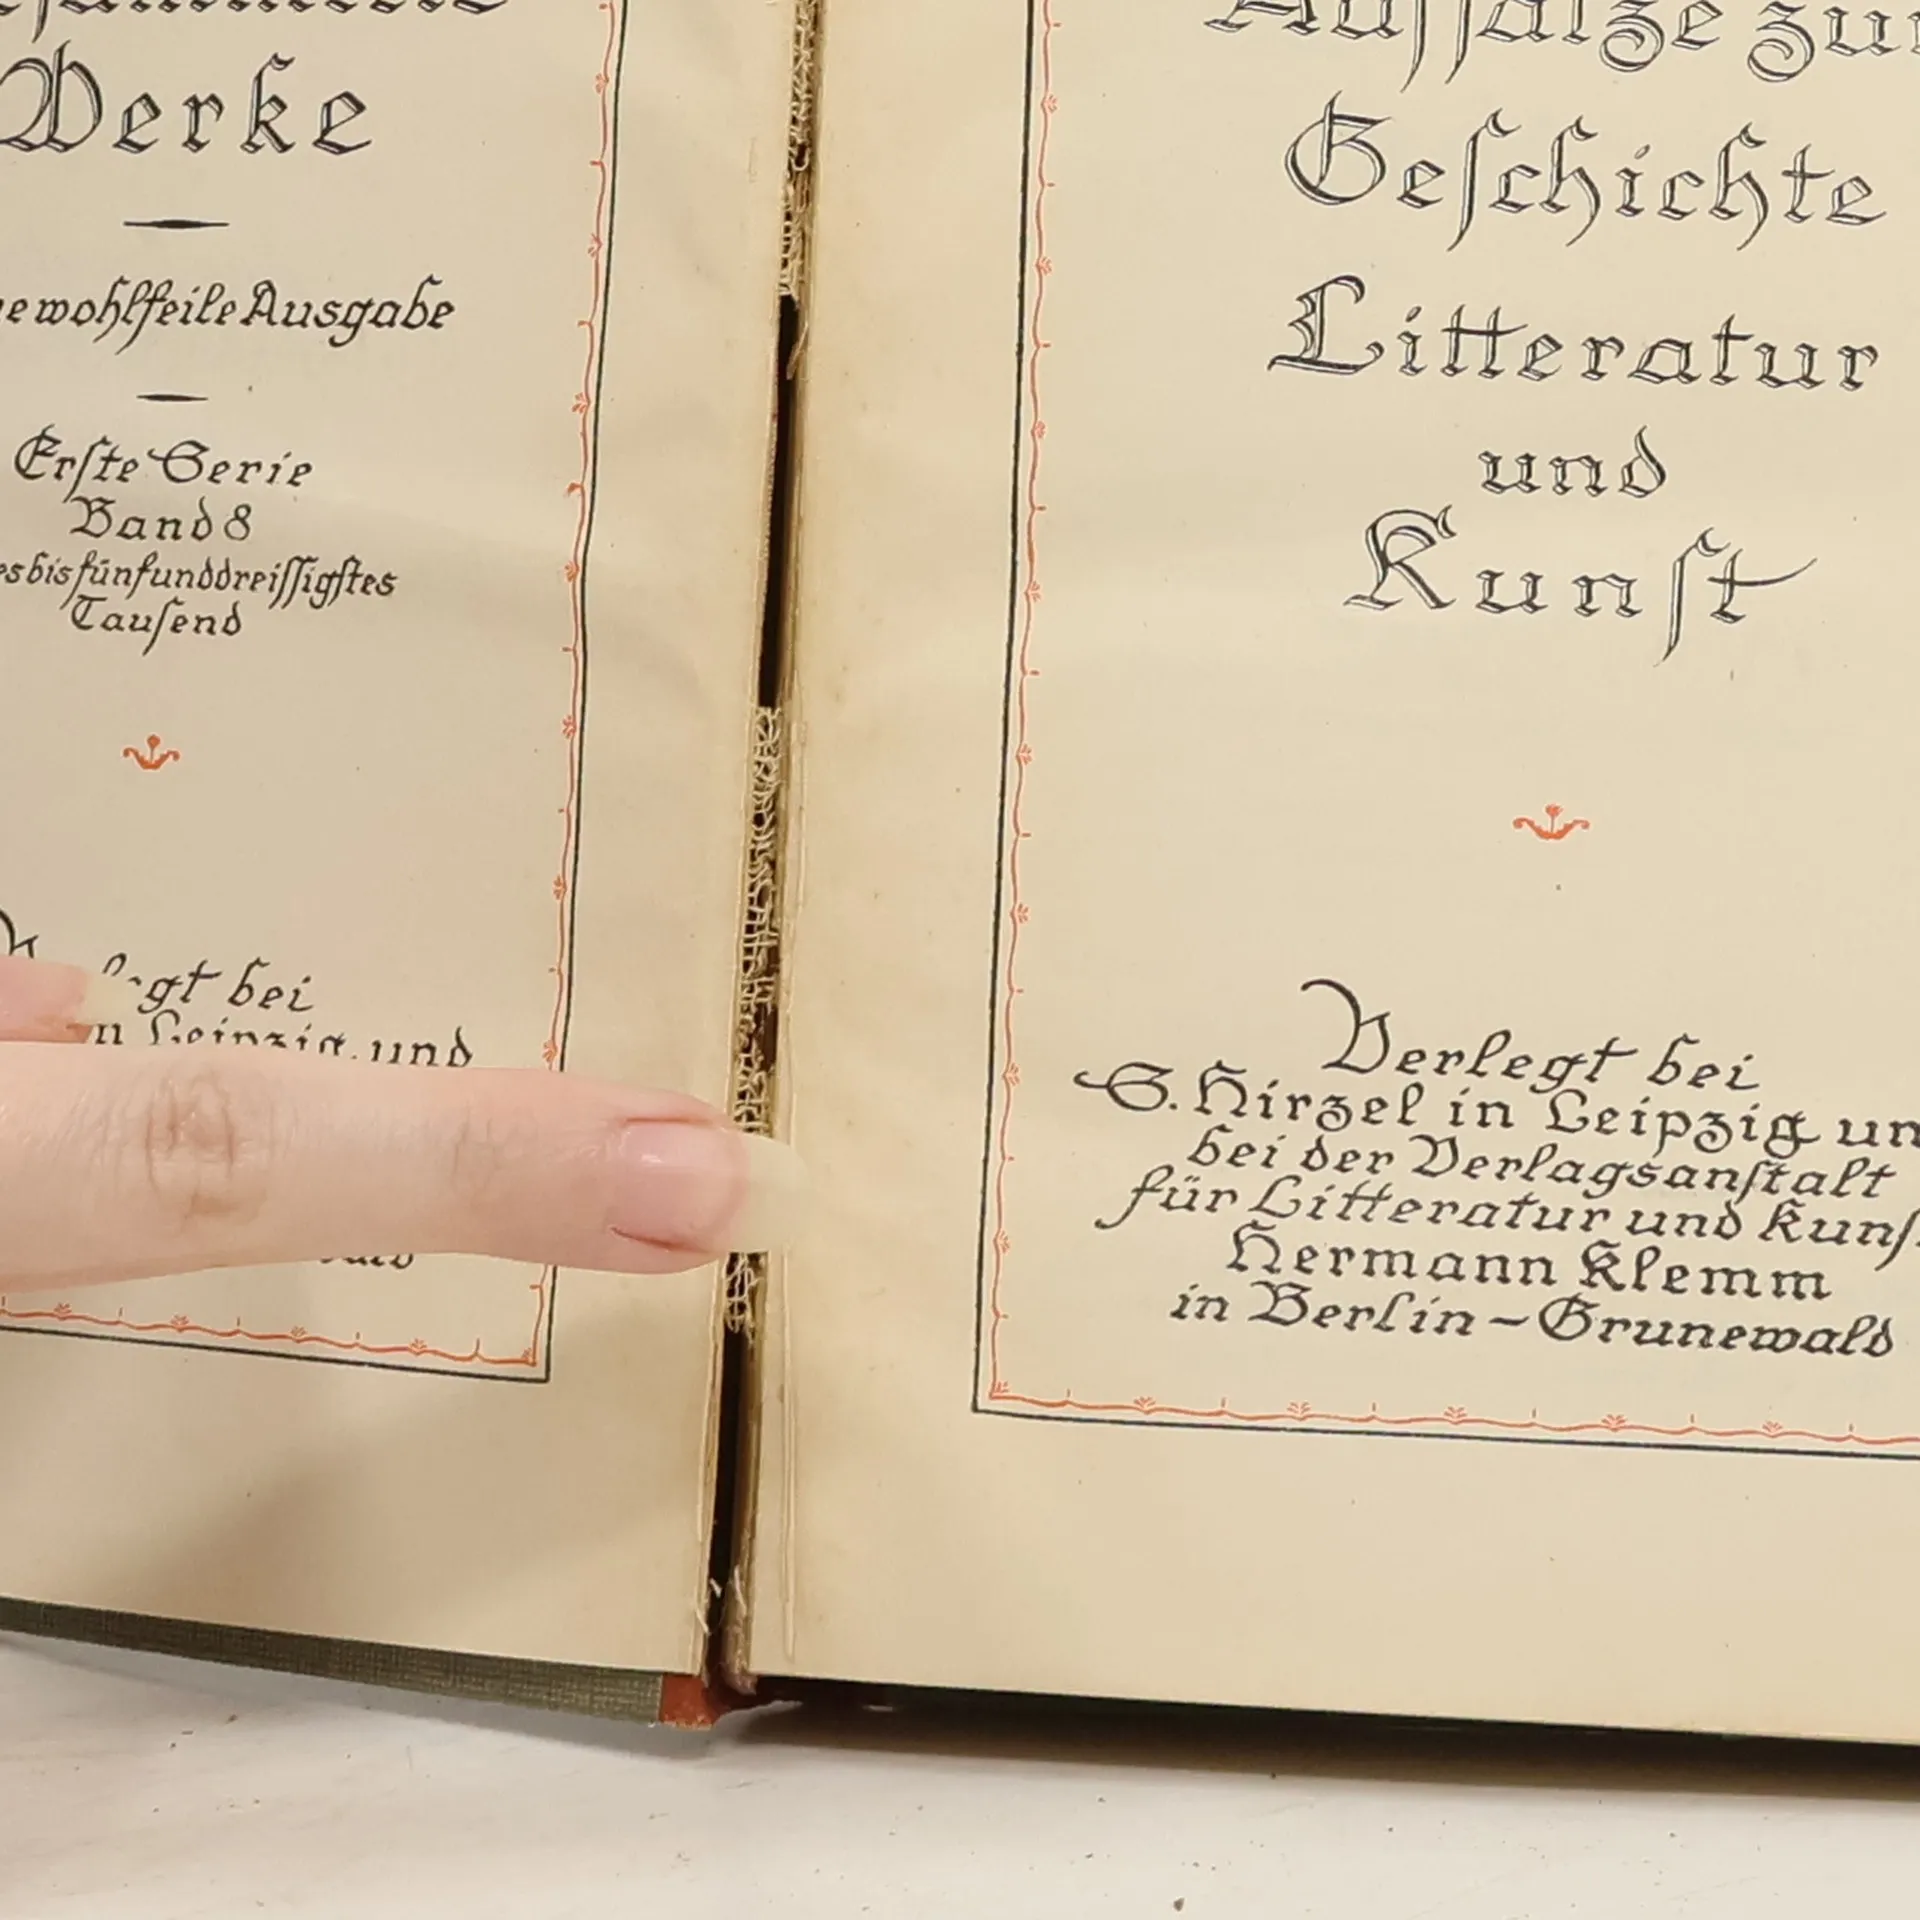 Werke
wohlfeile Ausgabe
Erſte Serie
Band 8
bis fünfunddreiſſigſtes
Tauſend
bei
Leipzig und
Aufſätze zur
Geſchichte
Litteratur
und
Kunſt
Verlegt bei
S. Hirzel in Leipzig un
bei der Verlagsanſtalt
für Litteratur und Kunſ
Hermann Klemm
in Berlin-Grunewald